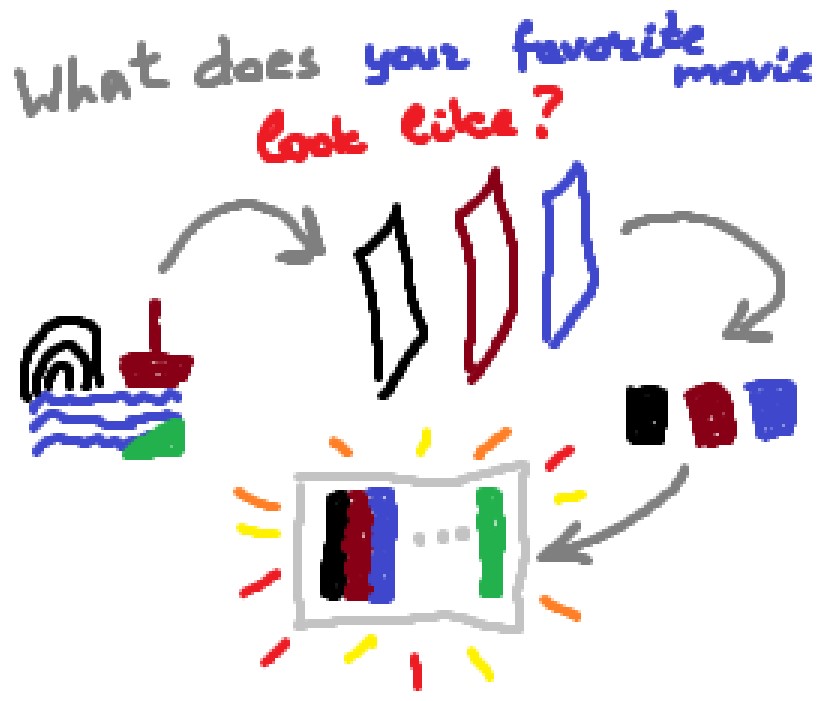 What does your favorite movie
look like?